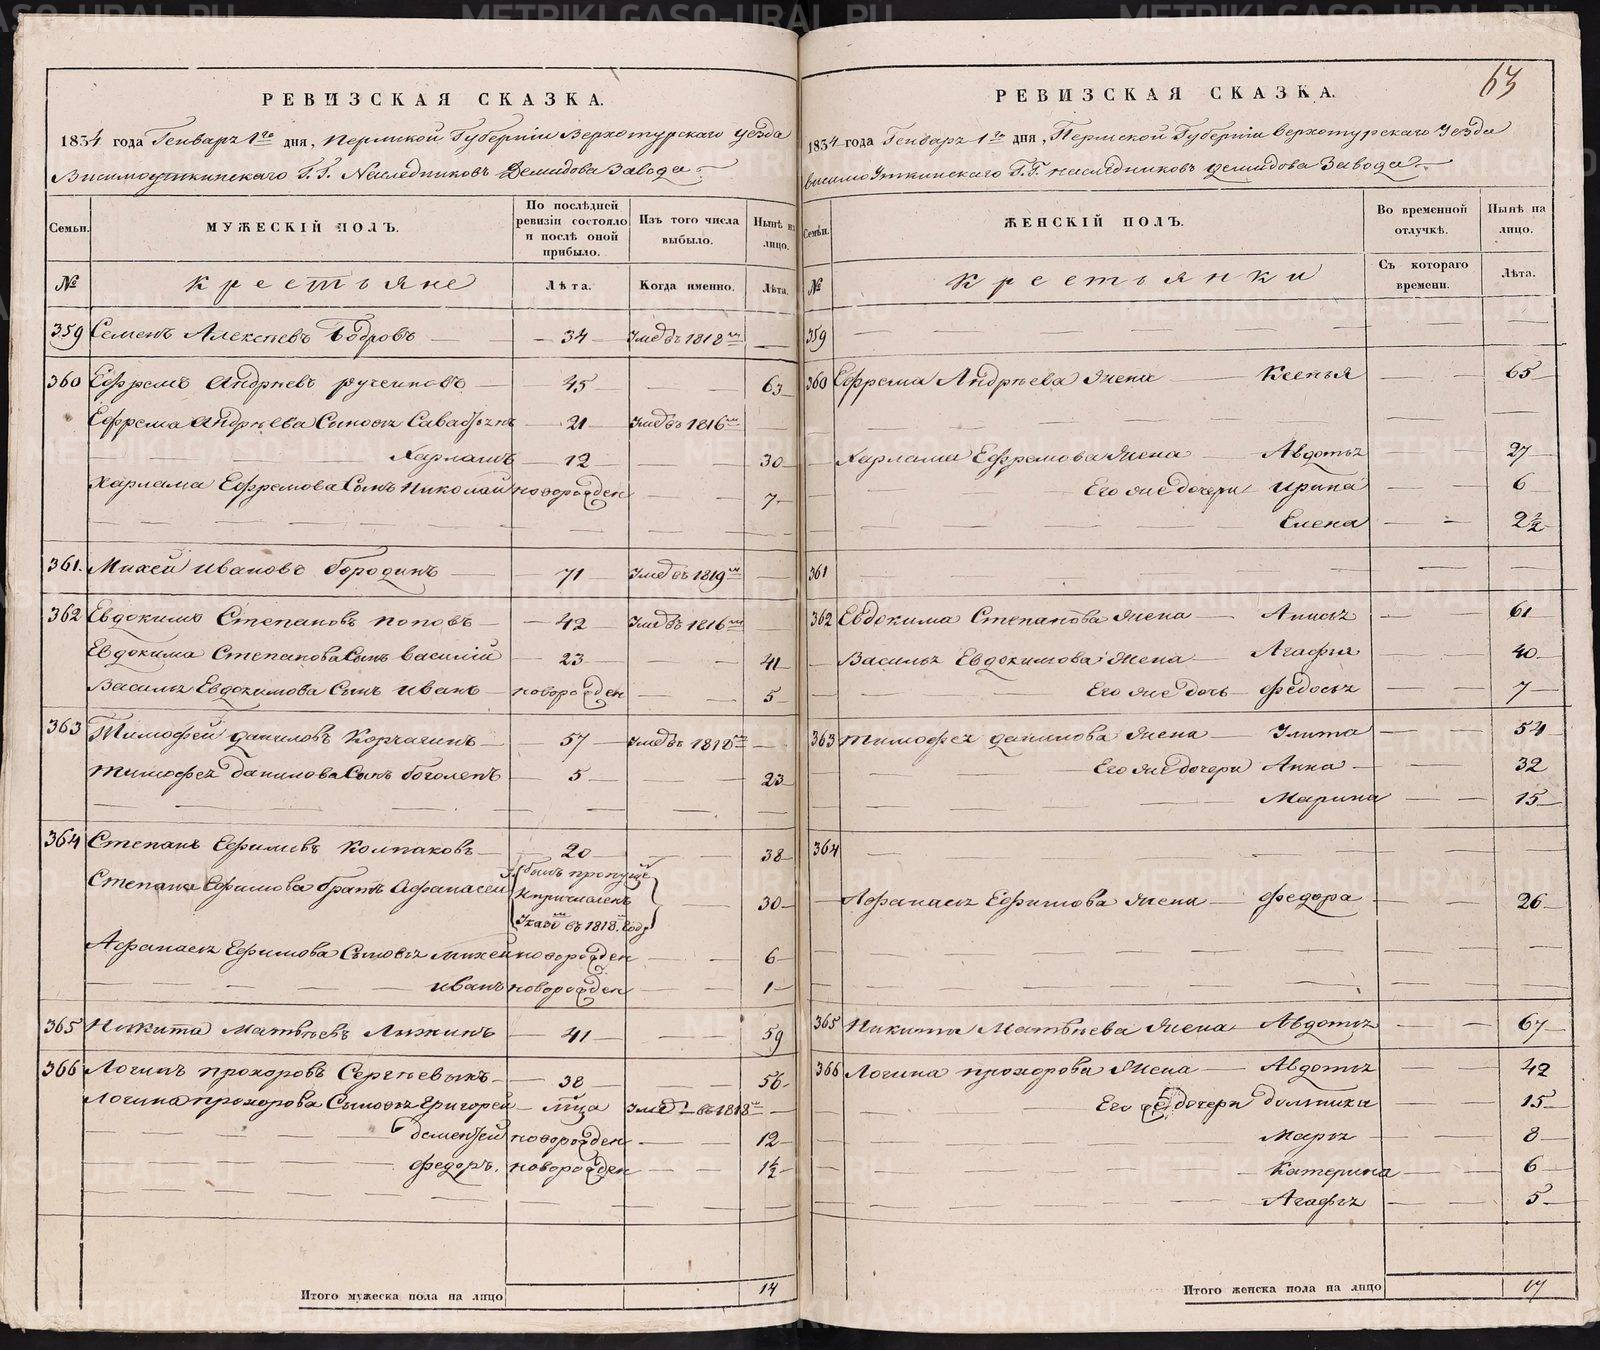 РЕВИЗСКАЯ СКАЗКА.
1834 года Генваря 1го дня, Пермской Губерніи Верхотурскаго уезда
Висимоуткинскаго Г.Г. Наследниковъ Демидова Завода
Семьи.
МУЖЕСКІЙ ПОЛЪ.
По послѣдней ревизіи состояло и послѣ оной прибыло.
Изъ того числа выбыло.
Нынѣ на лицо.
№
Крестьяне
Лѣта.
Когда именно.
Лѣта.
359 Семенъ Алексѣевъ Бобровъ 34 Умеръ въ 1818м
360 Ефремъ Андрѣевъ 45 63
Ефрема Андрѣева Сыновья 21 Умеръ въ 1816м
Харлашъ 12 30
Харлама Ефремова Сынъ Николай новорожден 7
361. Михей Ивановъ Бородинъ 71 Умеръ въ 1819м
362 Евдокимъ Степановъ Поповъ 42 Умеръ въ 1816м
Евдокима Степанова Сынъ Василій 23 41
Василья Евдокимова Сынъ Иванъ новорожден 5
363 Тимофей Даниловъ Корчагинъ 57 Умеръ въ 1818м
Тимофея Данилова Сынъ Боголепъ 5 23
364 Степанъ Ефимовъ Колпаковъ 20 38
Степана Ефимова братъ Афанасей былъ пропуще и причисленъ Указом въ 1818. году 30
Афанасья Ефимова Сыновья Михей новорожден 6
Иванъ новорожден 1
365 Никита Матвѣевъ Лыжинъ 41 59
366 Логинъ Прохоровъ Сергѣевыхъ 38 56
Логина Прохорова Сыновья Григорей Умеръ въ 1818
Дементей новорожден 12
Федоръ. новорожден 1½
Итого мужеска пола на лицо 14
63
РЕВИЗСКАЯ СКАЗКА.
1834 года Генваря 1го дня, Пермской Губерніи Верхотурскаго Уезда
Висимо Уткинскаго Г.Г. наследниковъ Демидова Завода
Семьи.
ЖЕНСКІЙ ПОЛЪ.
Во временной отлучкѣ.
Нынѣ на лицо.
№
Крестьянки
Съ котораго времени.
Лѣта.
359
360 Ефрема Андрѣева Жена Ксенья 65
Харлама Ефремова Жена Авдотья 27
Его же дочери Ирина 6
Елена 2½
361
362 Евдокима Степанова Жена Анисья 61
Василья Евдокимова Жена Агафья 40
Его же дочь Федосья 7
363 Тимофея Данилова Жена Улита 54
Его же дочери Анна 32
Марина 15
364
Афанасья Ефимова Жена Федора 26
365 Никиты Матвѣева Жена Авдотья 67
366 Логина Прохорова Жена Авдотья 42
Его же дочери 15
Марья 8
Катерина 6
Агафья 5
Итого женска пола на лицо 17